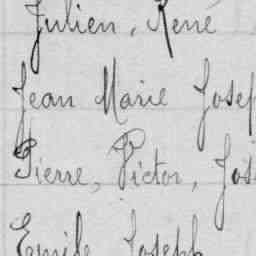 Julien, René
Jean Marie Josep
Pierre, Victor, Jos
Emile Joseph